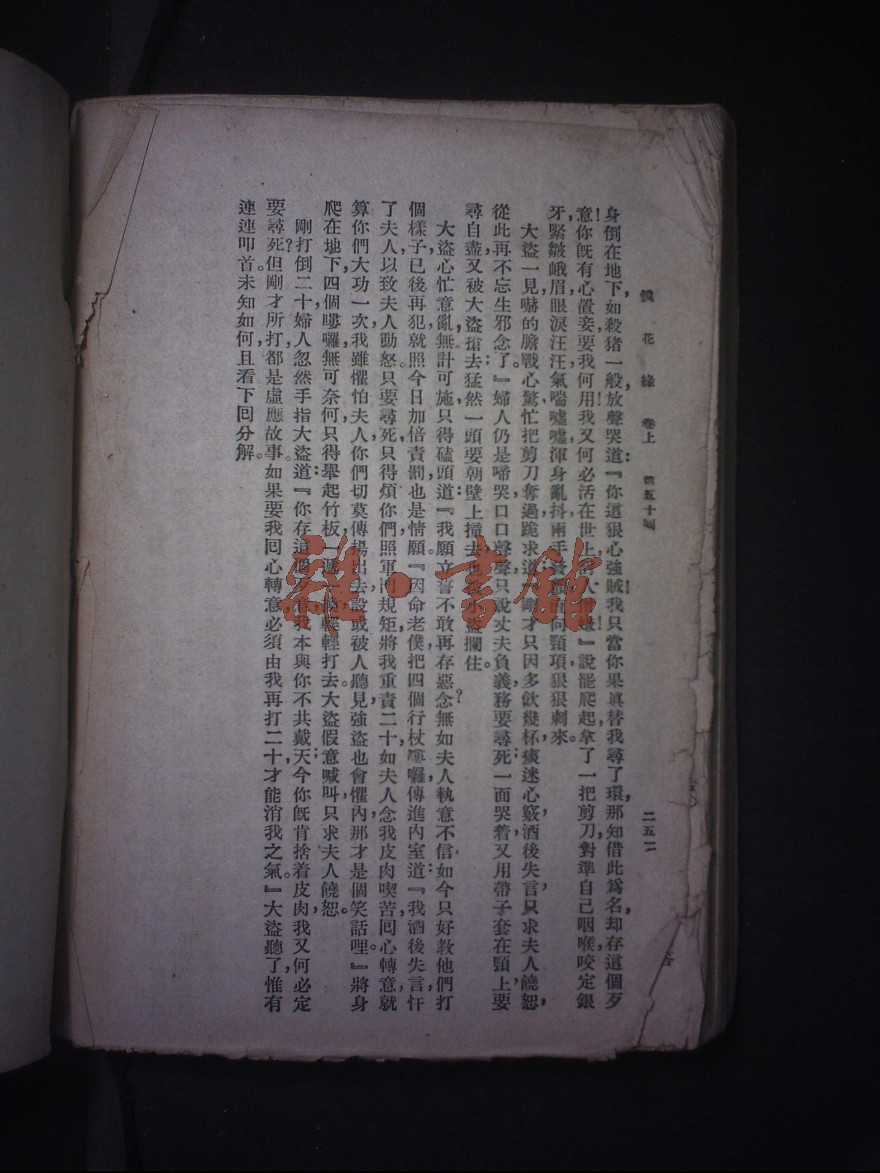 鏡花緣 卷上 第五十回 二五二
身倒在地下如殺猪一般，放聲哭道：『你這狠心強賊！我只當你果眞替我尋了環，那知借此爲名，却存這個歹
意！你旣有心置妾，要我何用！我又何必活在世上，討人』說罷，爬起拿了一把剪刀，對準自己咽喉，咬定銀
牙，緊皺峨眉，眼淚汪汪，氣喘噓噓，渾身亂抖，兩手向頸項狠狠刺來。
大盜一見，嚇的膽戰心驚，忙把剪刀奪過，跪求道：『剛才只因多飲幾杯，痰迷心竅，酒後失言，只求夫人饒恕，
從此再不忘生邪念了。』婦人仍是啼哭，口口聲聲，只說丈夫負義，務要尋死；一面哭着，又用帶子套在頸上，要
尋自盡，又被大盜搶去；猛然一頭要朝壁上撞去，也攔住。
大盜心忙意亂，無計可施，只得磕頭道：『我願立誓不敢再存惡念，無如夫人執意不信，如今只好教他們打
個樣子，已後再犯，就照今日加倍責罰，也是情願。『因命老僕把四個行杖嘍囉傳進內室道：『我酒後失言，忤
了夫人，以致夫人動怒，只要尋死，只得煩你們照軍門規矩，將我重責二十，如夫人念我皮肉喫苦，回心轉意，就
算你們大功一次，我雖懼怕夫人，你們切莫傳揚出去，設或被人聽見強盜也會懼內，那才是個笑話哩。』將身
爬在地下，四個嘍囉，無可奈何，只得舉起竹板，一輕輕打去，大盜假意喊叫，只求夫人饒恕。
剛打倒二十，婦人忽然手指大盜道：『你存這個我本與你不共戴天；今你旣肯捨着皮肉，我又何必定
要尋死？但剛才所打，都是虛應故事。如果要我回心轉意，必須由我再打二十，才能消我之氣。』大盜聽了，惟有
連連叩首。未知如何，且看下回分解。
雜·書館